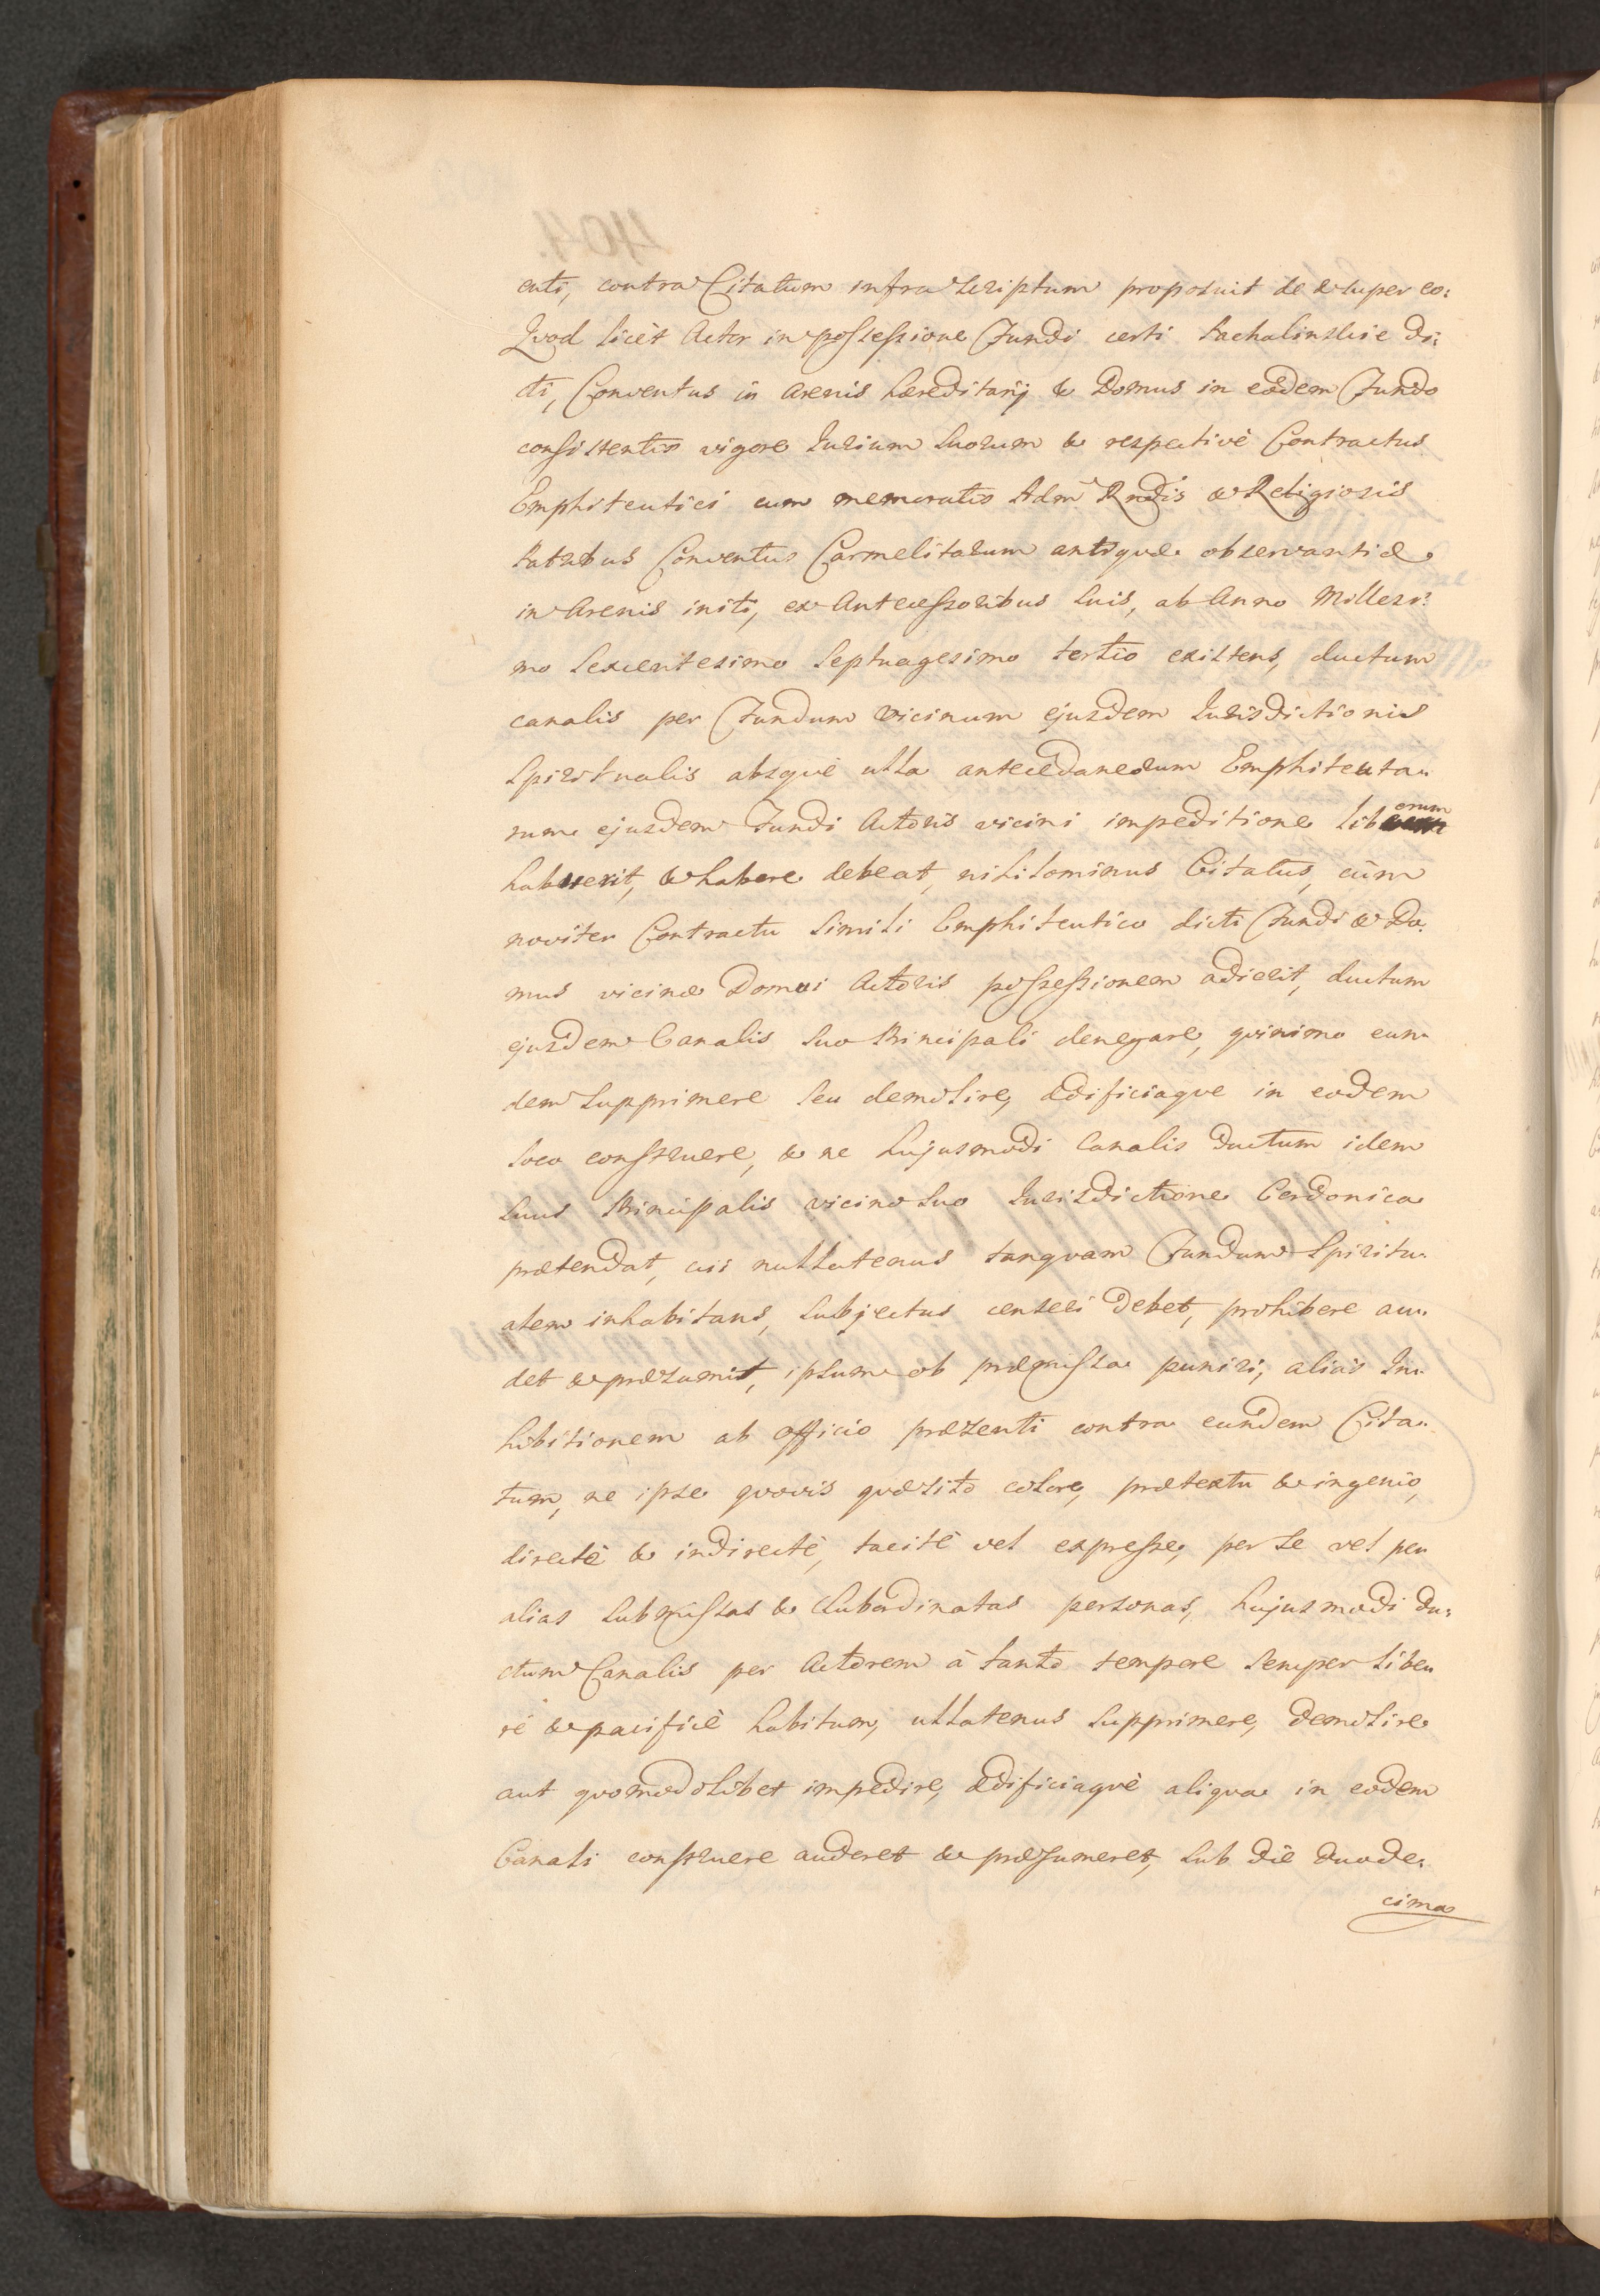 enti, contra Citatum infra scriptum proposuit de & super eo:
Qvod licèt Actor in possessione Fundi certi Pachalinskie di:
cti, Conventus in Arenis hæreditarij & Domus in eodem Fundo
consistentis vigore Jurium suorum & respectivè Contractus
Emphiteutici cum memoratis Adm Rndis & Religiosis
Patribus Conventus Carmelitarum antiquæ observantiæ
in Arenis initi, ex Antecessoribus suis, ab Anno Millesi:
mo Sexcentesimo Septuagesimo tertio existens, ductum
canalis per Fundum vicinum ejusdem Jurisdictionis
Spiritualis absque ulla antecedaneorum Emphiteuta:
rum ejusdem Fundi Actoris vicini impeditione liberum
habuerit, & habere debeat, nihilominus Citatus, cùm
noviter Contractu simili Emphiteutico dicti Fundi & Do:
mus vicinæ Domui Actoris possessionem adierit, ductum
ejusdem Canalis suo Principali denegare, qvinimo eun:
dem supprimere seu demolire, ædificiaqve in eodem
loco construere, & ne hujusmodi Canalis ductum idem
suus Principalis vicino suo Jurisdictione Cerdonica
prætendat, cui nullatenus tanqvam Fundum Spiritu:
alem inhabitans, subjectus censeri debet, prohibere au:
det & præsumit, ipsum ob præmissa puniri, aliàs In:
hibitionem ab officio præsenti contra eundem Cita:
tum, ne ipse qvovis qvæsito colore, prætextu & ingenio,
directè & indirectè, tacitè vel expresse, per se vel per
alias submissas & subordinatas personas, hujusmodi du:
ctum Canalis per Actorem à tanto tempore semper libe:
rè & pacificè habitum, ullatenus supprimere, demolire
aut qvomodolibet impedire, ædificiaqvè aliqva in eodem
Canali construere auderet & præsumeret, sub diè duode:
cima